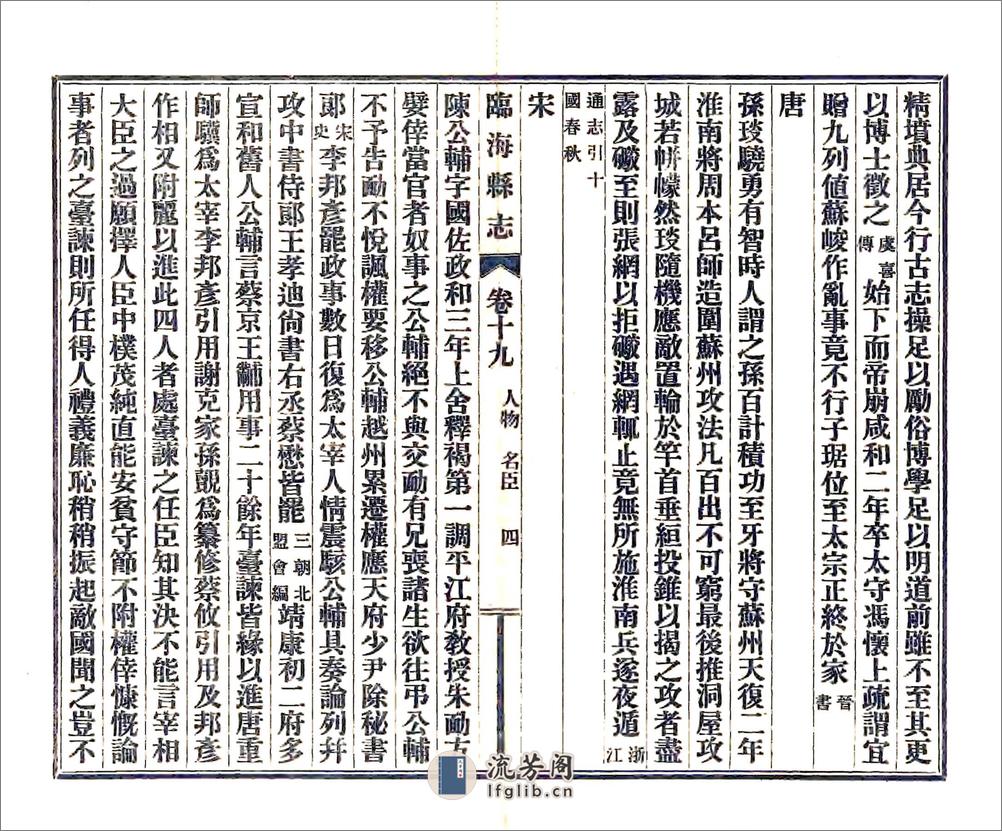 精墳典居今行古志操足以勵俗博學足以明道前雖不至其更
以博士徵之虞喜傳始下而帝崩咸和二年卒太守馮懷上疏謂宜
贈九列值蘇峻作亂事竟不行子琚位至太宗正終於家晉書
唐
孫琰驍勇有智時人謂之孫百計積功至牙將守蘇州天復二年
淮南將周本呂師造圍蘇州攻法凡百出不可窮最後推洞屋攻
城若帡幪然琰隨機應敵置輪於竿首垂絙投錐以揭之攻者盡
露及礮至則張網以拒礮遇網輒止竟無所施淮南兵遂夜遁浙江
通志引十國春秋
宋
臨海縣志 卷十九 人物 名臣 四
陳公輔字國佐政和三年上舍釋褐第一調平江府教授朱勔方
嬖倖當官者奴事之公輔絕不與交勔有兄喪諸生欲往弔公輔
不予告勔不悅諷權要移公輔越州累遷權應天府少尹除秘書
郞宋史李邦彥罷政事數日復爲太宰人情震駭公輔具奏論列幷
攻中書侍郞王孝迪尙書右丞蔡懋皆罷三朝北盟會編靖康初二府多
宣和舊人公輔言蔡京王黼用事二十餘年臺諫皆緣以進唐重
師驥爲太宰李邦彥引用謝克家孫覿爲纂修蔡攸引用及邦彥
作相又附麗以進此四人者處臺諫之任臣知其決不能言宰相
大臣之過願擇人臣中樸茂純直能安貧守節不附權倖慷慨論
事者列之臺諫則所任得人禮義廉恥稍稍振起敵國聞之豈不
流芳阁
lfglib.cn